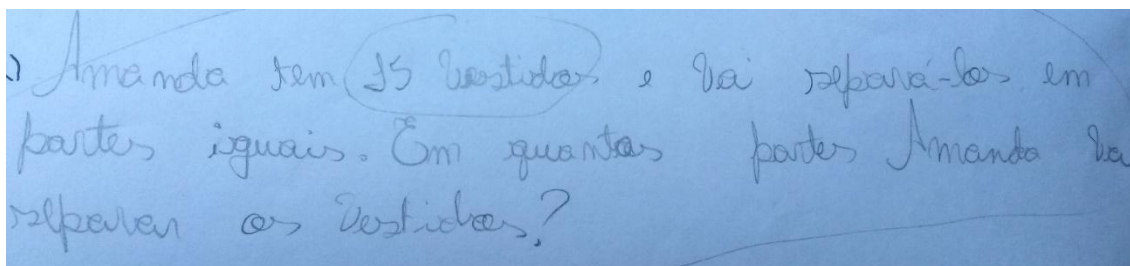 ) Amanda tem 15 vestidos e vai separá-los em
partes iguais. Em quantas partes Amanda va
separar os vestidos?